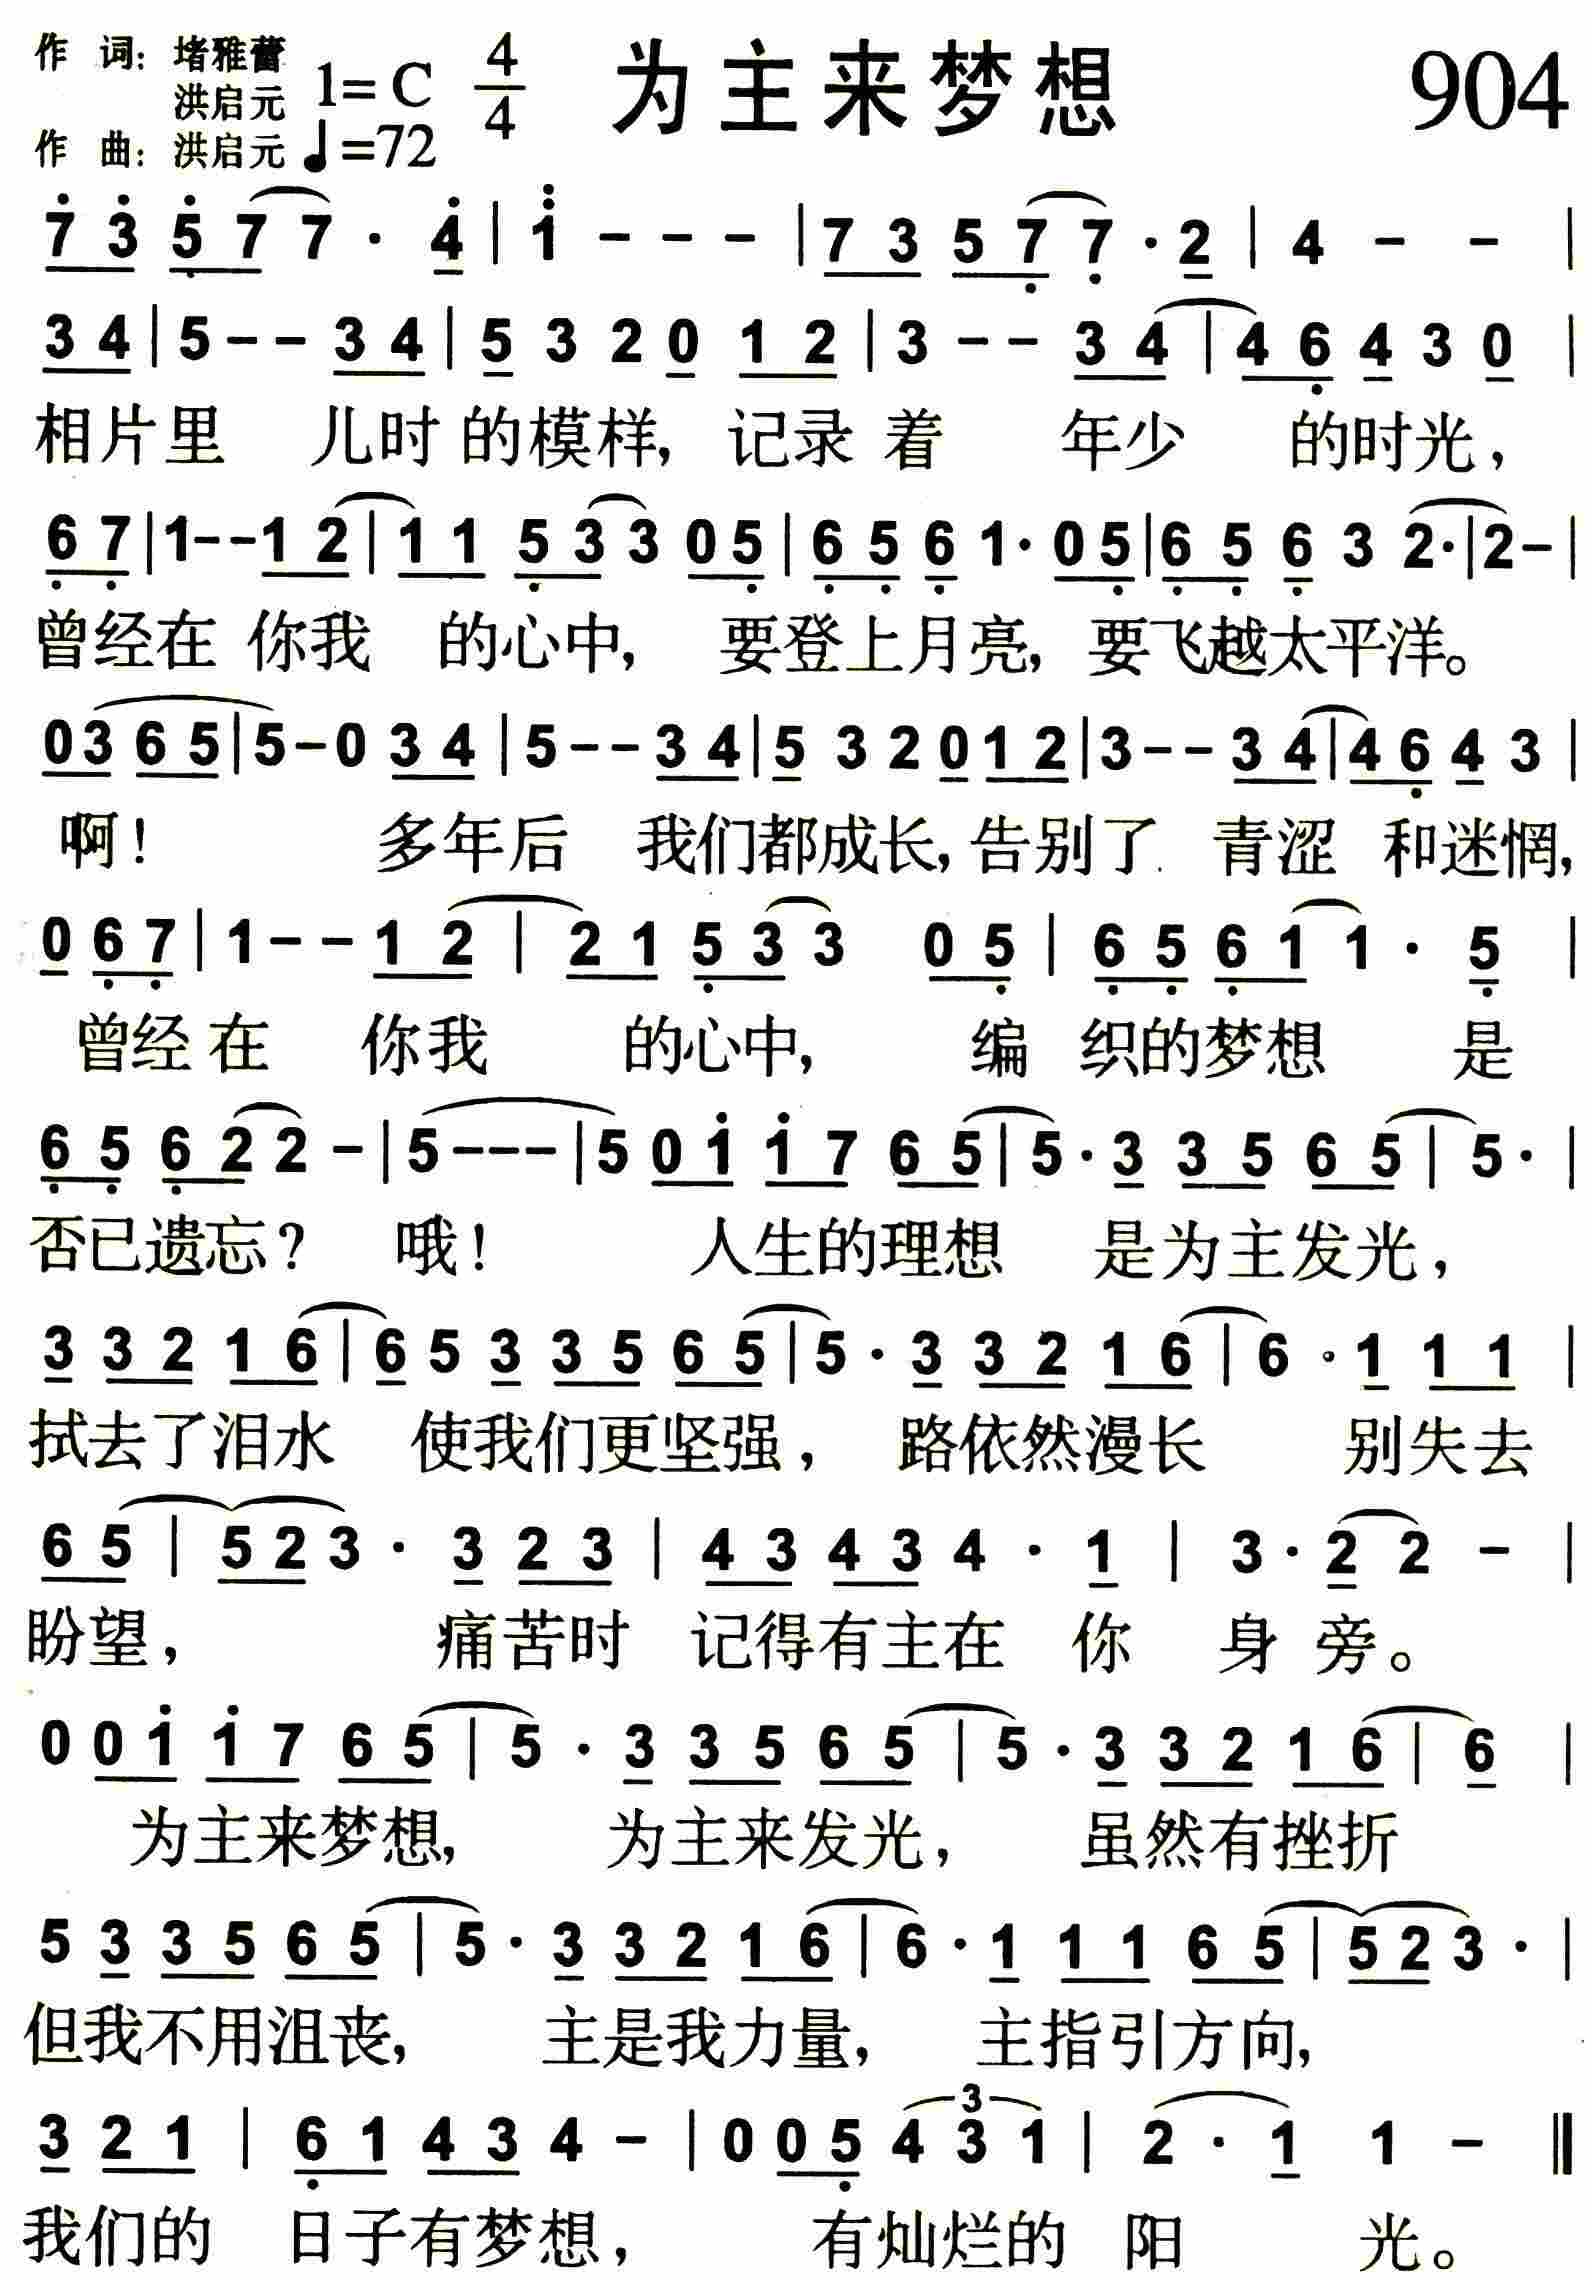 作 词：堵雅蕾
洪启元
作 曲：洪启元
1=C 4/4
♩=72
为主来梦想
904
7 3 5 7 7 · 4 | 1 - - - | 7 3 5 7 7 · 2 | 4 - - |
3 4 | 5 - - 3 4 | 5 3 2 0 1 2 | 3 - - 3 4 | 4 6 4 3 0 |
相片里 儿时的模样, 记录着 年少 的时光,
6 7 | 1 - - 1 2 | 1 1 5 3 3 0 5 | 6 5 6 1 · 0 5 | 6 5 6 3 2 · | 2 - |
曾经在 你我 的心中, 要登上月亮, 要飞越太平洋。
0 3 6 5 | 5 - 0 3 4 | 5 - - 3 4 | 5 3 2 0 1 2 | 3 - - 3 4 | 4 6 4 3 |
啊! 多年后 我们都成长, 告别了 青涩 和迷惘,
0 6 7 | 1 - - 1 2 | 2 1 5 3 3 0 5 | 6 5 6 1 1 · 5 |
曾经在 你我 的心中, 编 织的梦想 是
6 5 6 2 2 - | 5 - - - | 5 0 1 1 7 6 5 | 5 · 3 3 5 6 5 | 5 · |
否已遗忘? 哦! 人生的理想 是为主发光,
3 3 2 1 6 | 6 5 3 3 5 6 5 | 5 · 3 3 2 1 6 | 6 · 1 1 1 |
拭去了泪水 使我们更坚强, 路依然漫长 别失去
6 5 | 5 2 3 · 3 2 3 | 4 3 4 3 4 · 1 | 3 · 2 2 - |
盼望, 痛苦时 记得有主在 你 身 旁。
0 0 1 1 7 6 5 | 5 · 3 3 5 6 5 | 5 · 3 3 2 1 6 | 6 |
为主来梦想, 为主来发光, 虽然有挫折
5 3 3 5 6 5 | 5 · 3 3 2 1 6 | 6 · 1 1 1 6 5 | 5 2 3 · |
但我不用沮丧, 主是我力量, 主指引方向,
3 2 1 | 6 1 4 3 4 - | 0 0 5 4 3 1 | 2 · 1 1 - ‖
3
我们的 日子有梦想, 有灿烂的 阳 光。